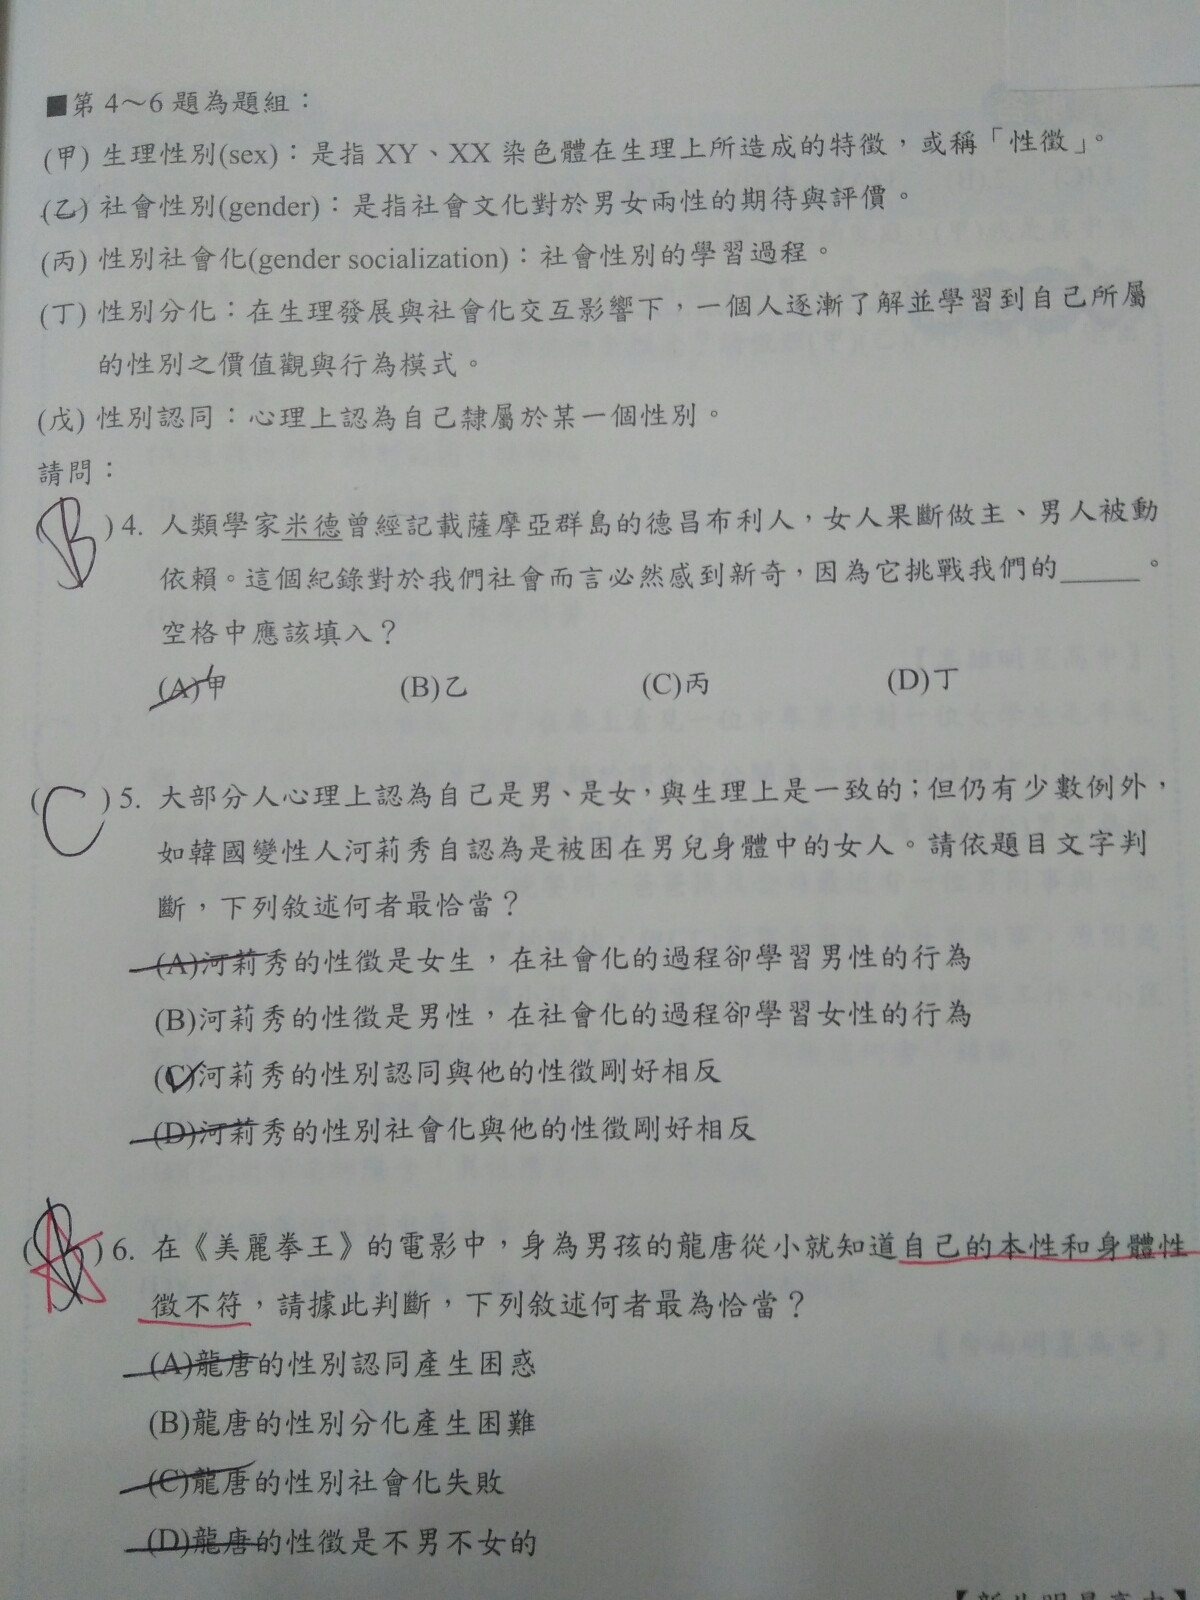 ■第 4～6 題為題組：
(甲) 生理性別(sex)：是指 XY、XX 染色體在生理上所造成的特徵，或稱「性徵」。
(乙) 社會性別(gender)：是指社會文化對於男女兩性的期待與評價。
(丙) 性別社會化(gender socialization)：社會性別的學習過程。
(丁) 性別分化：在生理發展與社會化交互影響下，一個人逐漸了解並學習到自己所屬
的性別之價值觀與行為模式。
(戊) 性別認同：心理上認為自己隸屬於某一個性別。
請問：
(B) 4. 人類學家米德曾經記載薩摩亞群島的德昌布利人，女人果斷做主、男人被動
依賴。這個紀錄對於我們社會而言必然感到新奇，因為它挑戰我們的_____。
空格中應該填入？
(A)甲 (B)乙 (C)丙 (D)丁
(C) 5. 大部分人心理上認為自己是男、是女，與生理上是一致的；但仍有少數例外，
如韓國變性人河莉秀自認為是被困在男兒身體中的女人。請依題目文字判
斷，下列敘述何者最恰當？
(A)河莉秀的性徵是女生，在社會化的過程卻學習男性的行為
(B)河莉秀的性徵是男性，在社會化的過程卻學習女性的行為
(C)河莉秀的性別認同與他的性徵剛好相反
(D)河莉秀的性別社會化與他的性徵剛好相反
(B) 6. 在《美麗拳王》的電影中，身為男孩的龍唐從小就知道自己的本性和身體性
徵不符，請據此判斷，下列敘述何者最為恰當？
(A)龍唐的性別認同產生困惑
(B)龍唐的性別分化產生困難
(C)龍唐的性別社會化失敗
(D)龍唐的性徵是不男不女的